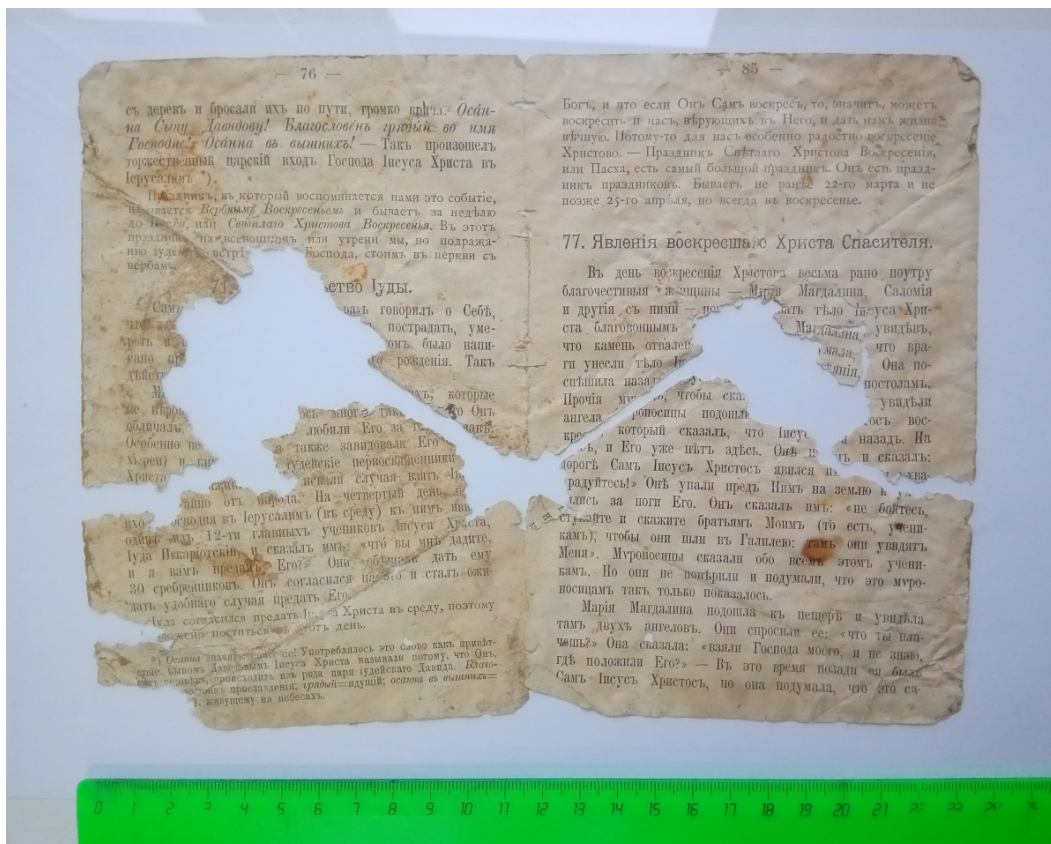 — 76 —
съ деревъ и бросали ихъ по пути, громко крича: Осáн-
на Сыну Давидову! Благословéнъ грядый во имя
Господне! Осáнна въ вышнихъ! — Такъ произошелъ
торжественный царскій входъ Господа Іисуса Христа въ
Іерусалимъ *).
Праздникъ, въ который воспоминается нами это событіе,
называется Вербнымъ Воскресеньемъ и бываетъ за недѣлю
до Пасхи, или Свѣтлаго Христова Воскресенья. Въ этотъ
праздникъ на всенощномъ или утрени мы, по подража-
нію іудеямъ, встрѣ Господа, стоимъ въ церкви съ
вербами.
ство Іуды.
Самъ разъ говорилъ о Себѣ,
что пострадать, уме-
реть и омъ было напи-
сано рожденія. Такъ
дѣйст
ихъ, которые
не вѣро что Онъ
обличалъ любили Его за
Особенно не также завидовали Его
іудейскіе первосвященники
Христа искали случая взять Іи
тайно отъ народа. На четвертый день
вхо Господня въ Іерусалимъ (въ среду) къ нимъ яви
одинъ изъ 12-ти главныхъ учениковъ Іисуса Христа,
Іуда Искаріотскій, и сказалъ имъ: «чтó вы мнѣ дадите,
и я вамъ предамъ Его?» Они обѣщали дать ему
30 сребренниковъ. Онъ согласился на это и сталъ ожи-
дать удобнаго случая предать Его.
Іуда согласился предать Іисуса Христа въ среду, поэтому
положено поститься въ этотъ день.
*) Осанна значитъ: спасеніе! Употреблялось это слово какъ привѣт-
ствіе. Сыномъ Давидовымъ Іисуса Христа называли потому, что Онъ,
какъ человѣкъ, происходитъ изъ рода царя іудейскаго Давида. Благо-
достоинъ прославленія; грядый=идущій; осанна въ вышнихъ=
живущему на небесахъ.
— 85 —
Богъ, и что если Онъ Самъ воскресъ, то, значитъ, можетъ
воскресить и насъ, вѣрующихъ въ Него, и дать намъ жизнь
вѣчную. Потому-то для насъ особенно радостно воскресеніе
Христово. — Праздникъ Свѣтлаго Христова Воскресенія,
или Пасха, есть самый большой праздникъ. Онъ есть празд-
никъ праздниковъ. Бываетъ не ранѣе 22-го марта и не
позже 25-го апрѣля, но всегда въ воскресенье.
77. Явленія воскресшаго Христа Спасителя.
Въ день воскресенія Христова весьма рано поутру
благочестивыя женщины — Марія Магдалина, Саломія
и другія съ ними — по зать тѣло Іисуса Хри-
ста благовоннымъ Магдалина, увидѣвъ,
что камень отвален мала, что вра-
ги унесли тѣло І Она по-
спѣшила назад постоламъ.
Прочія му о, чтобы ска увидѣли
ангела роносицы подошл ось вос-
крес который сказалъ, что Іисус назадъ. На
ъ, и Его уже нѣтъ здѣсь. Онѣ п ть и сказалъ:
дорогѣ Самъ Іисусъ Христосъ явился и
«радуйтесь!» Онѣ упали предъ Нимъ на землю и ухва-
тились за ноги Его. Онъ сказалъ имъ: «не бойтесь,
ступайте и скажите братьямъ Моимъ (то есть, учени-
камъ), чтобы они шли въ Галилею: тамъ они увидятъ
Меня». Мѵроносицы сказали обо всемъ этомъ учени-
камъ. Но они не повѣрили и подумали, что это мѵро-
носицамъ такъ только показалось.
Марія Магдалина подошла къ пещерѣ и увидѣла
тамъ двухъ ангеловъ. Они спросили ее: «что ты пла-
чешь?» Она сказала: «взяли Господа моего, и не знаю,
гдѣ положили Его?» — Въ это время позади ея былъ
Самъ Іисусъ Христосъ, но она подумала, что это са-
0 1 2 3 4 5 6 7 8 9 10 11 12 13 14 15 16 17 18 19 20 21 22 23 24